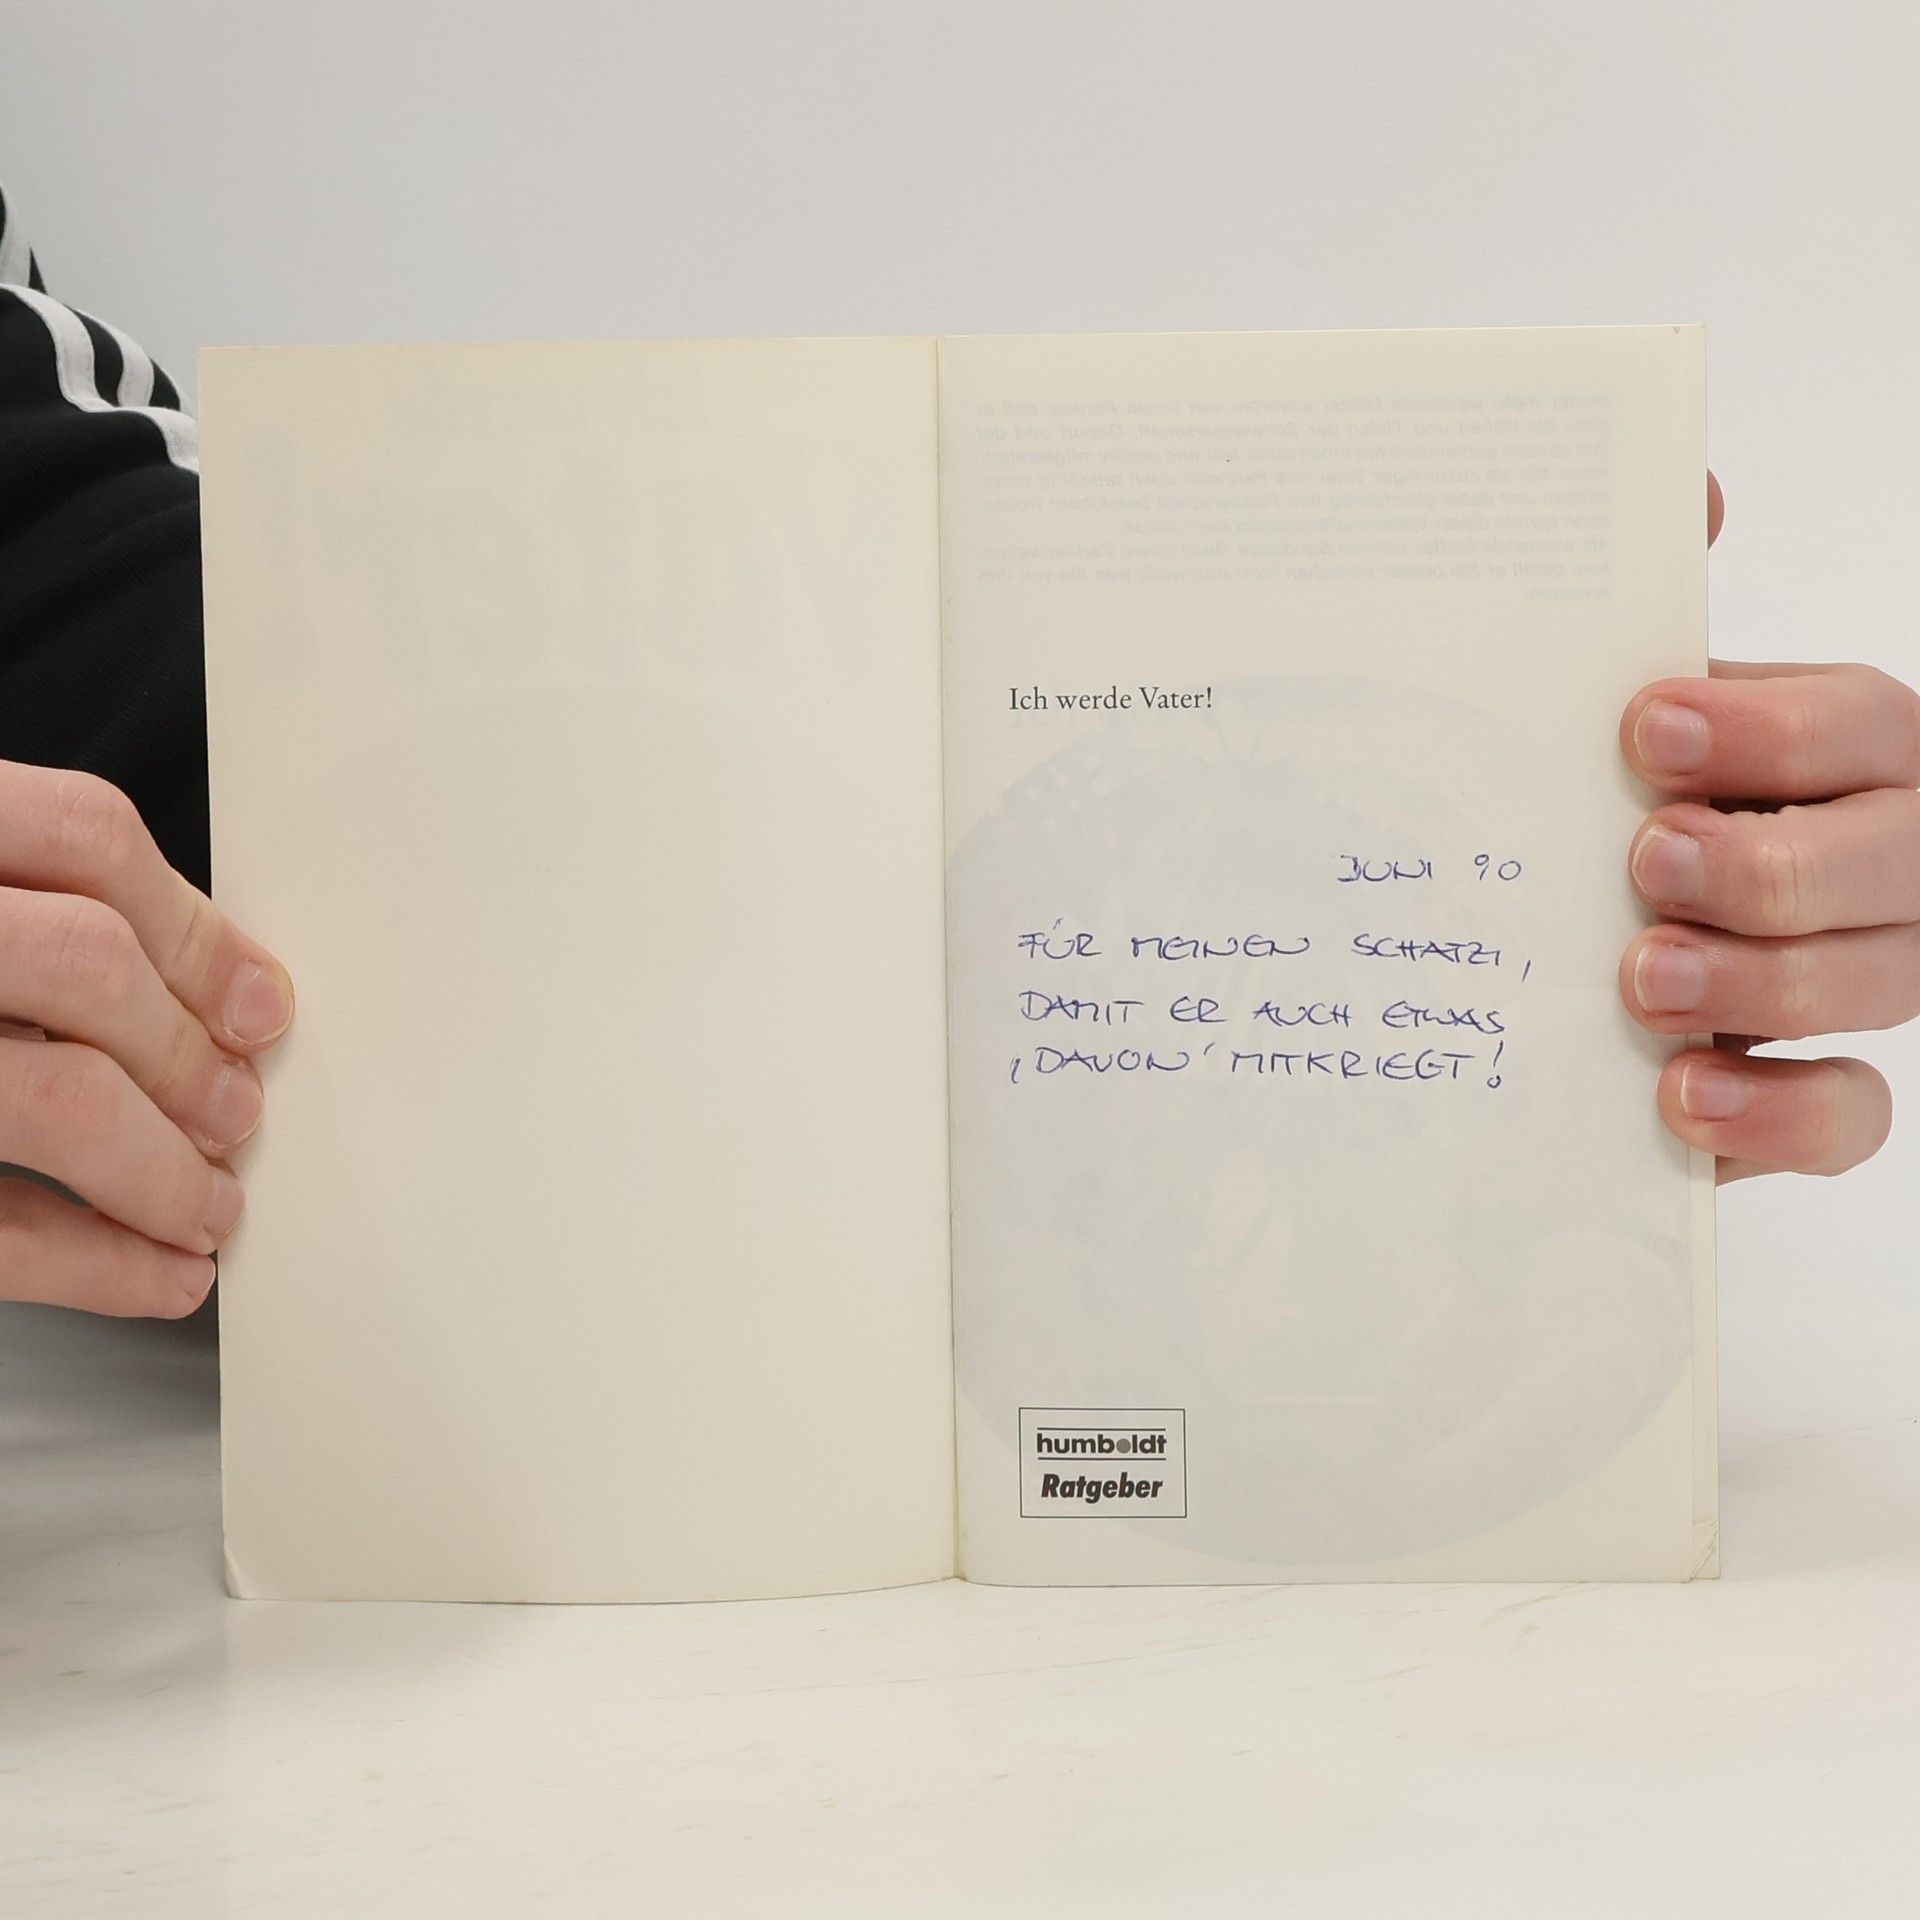 Ich werde Vater!
JUNI 90
FÜR MEINEN SCHATZI,
DAMIT ER AUCH ETWAS
‚DAVON' MITKRIEGT!
humboldt
Ratgeber